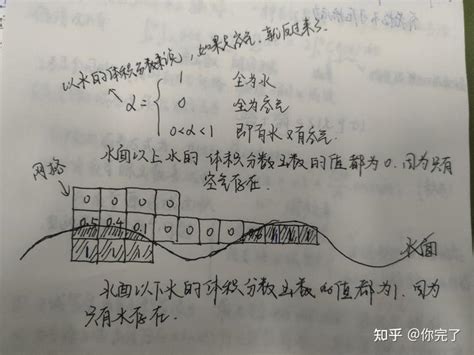 以水的体积分数来说，如果是空气，就反过来了.
α = { 1 全为水
0 全为空气
0<α<1 即有水又有空气.
水面以上水的体积分数函数的值都为0. 因为只有
空气存在.
网格
0 0 0 0
0.5 0.4 0.1 0 0 0 0
1 1 1
水面
水面以下水的体积分数函数的值都为1. 因为
只有水存在.
知乎 @你完了